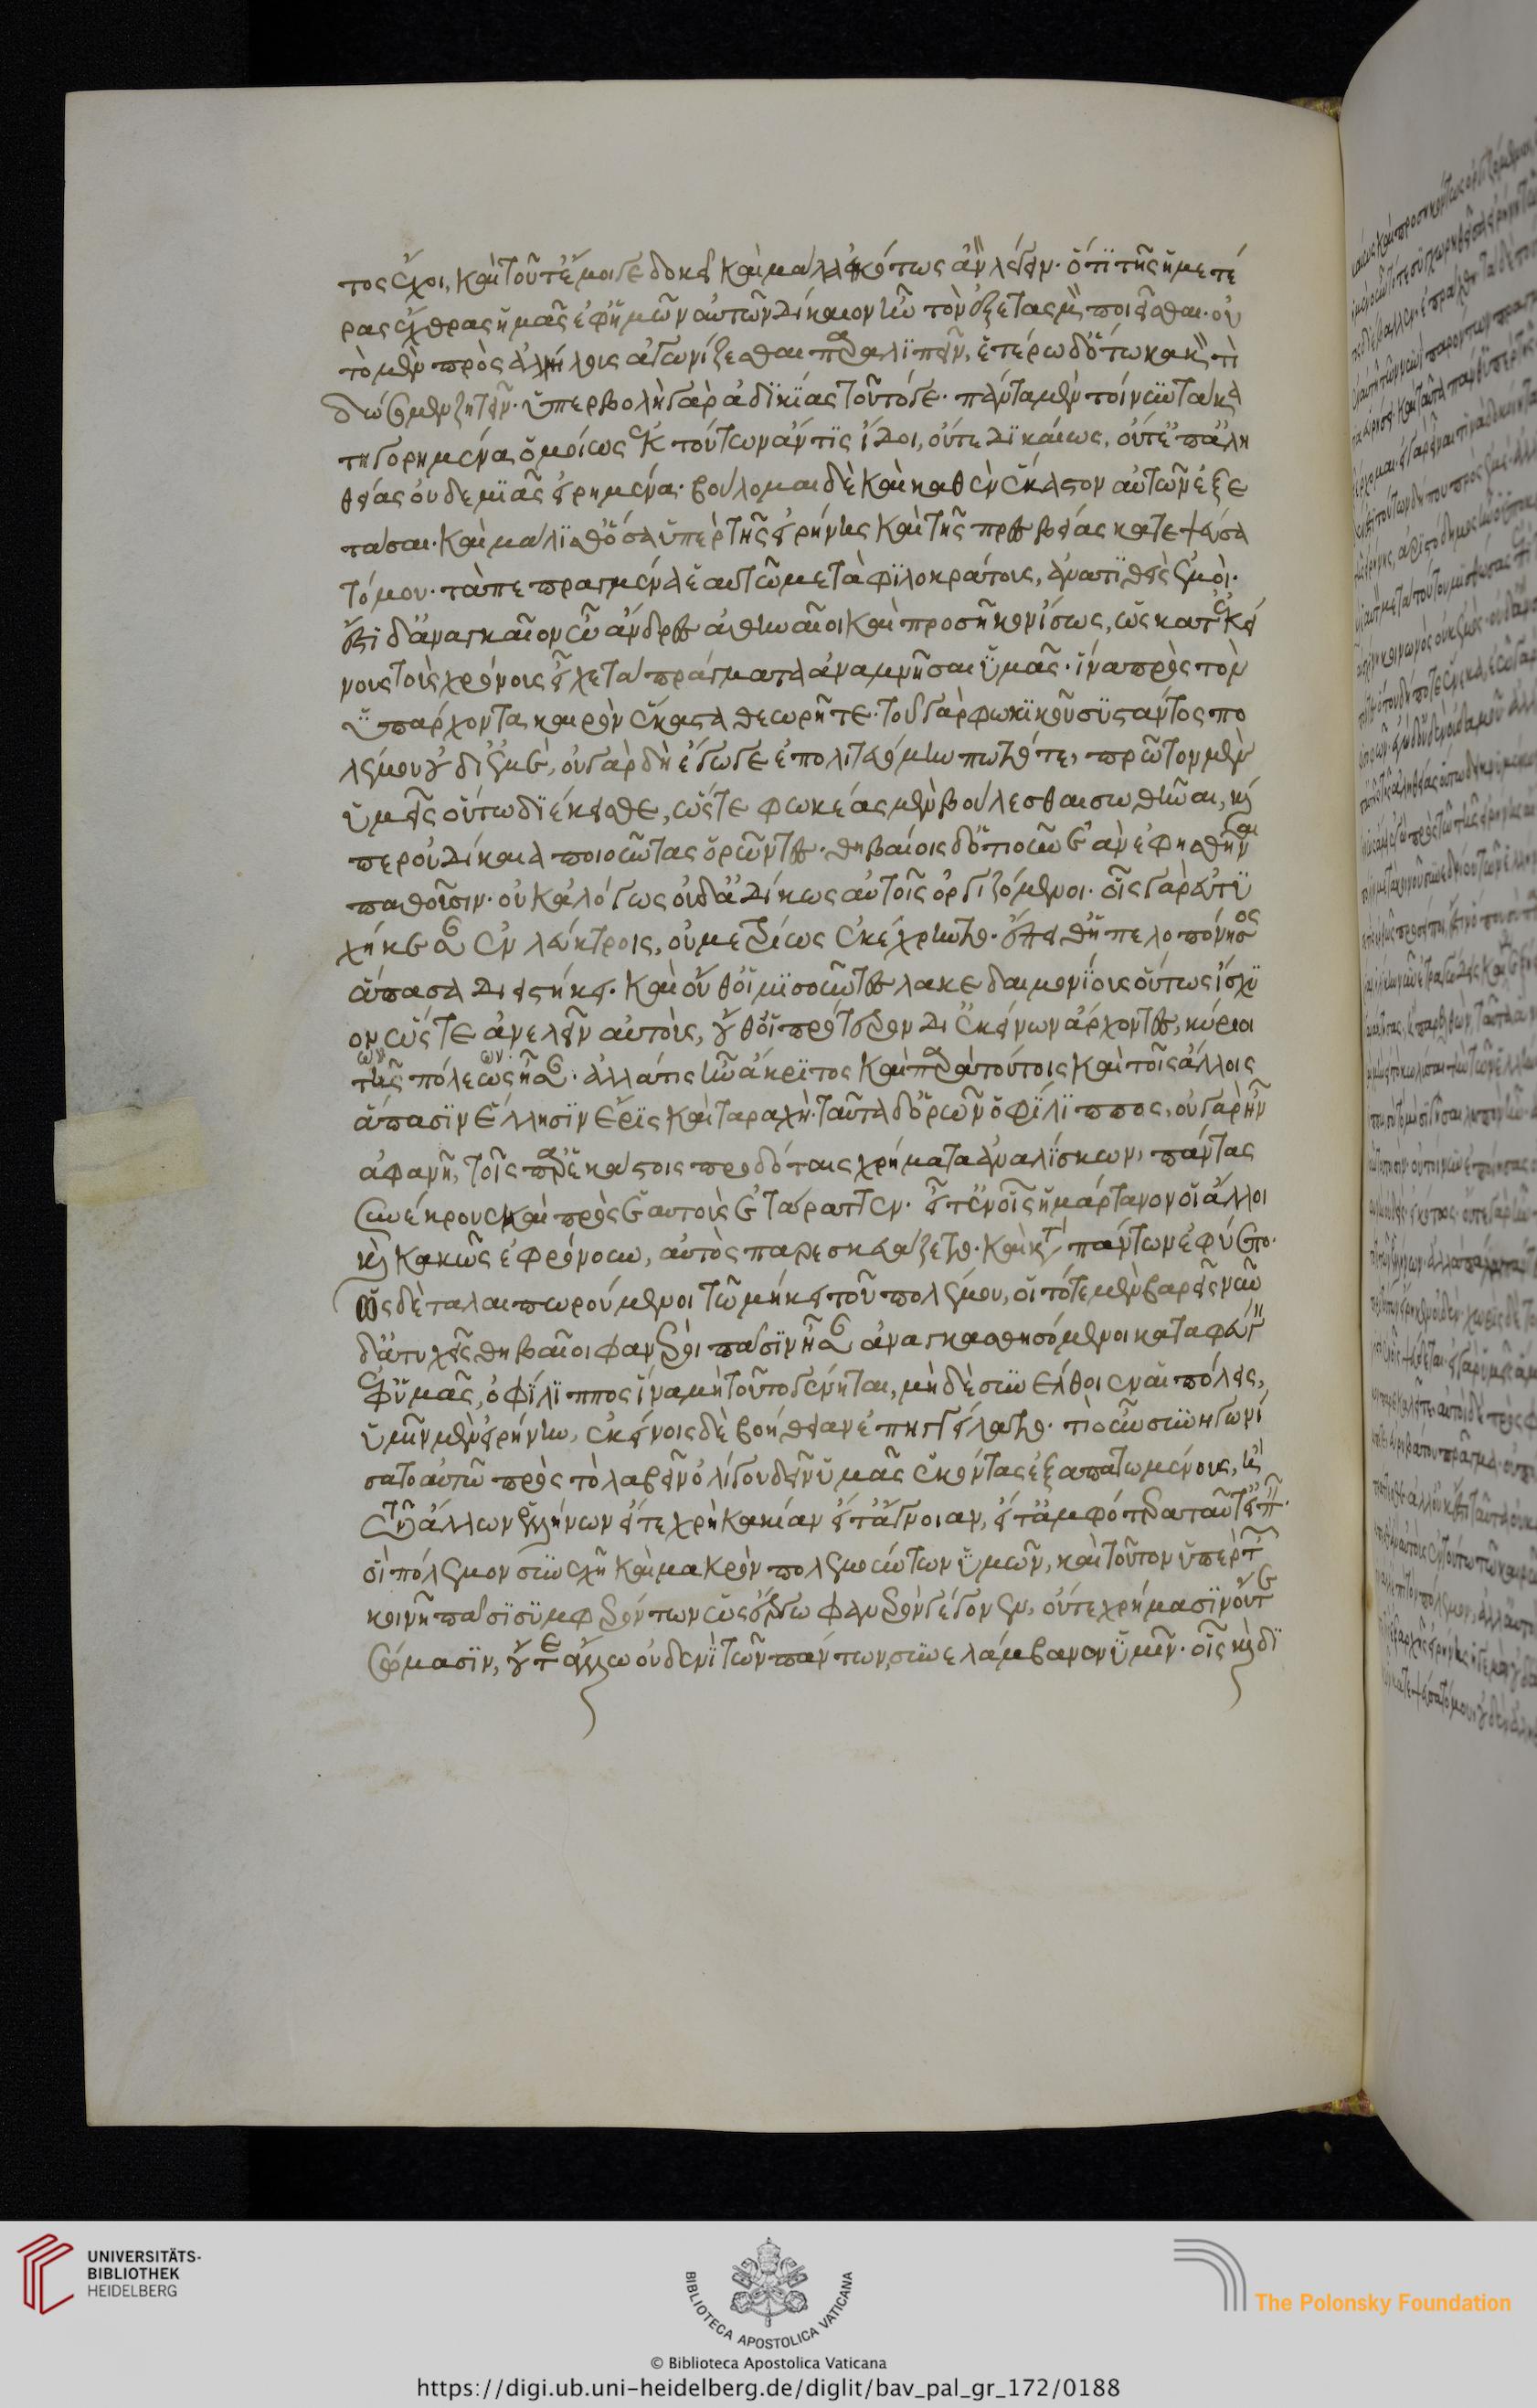 τος ἔχοι, καὶ τοῦτ' ἔμοιγε δοκεῖ καὶ μάλ' εἰκότως ἂν λέγειν· ὅτι τῆς ἡμετέ
ρας ἔχθρας ἡμᾶς ἐφ' ἡμῶν αὐτῶν δίκαιον ἦν τὸν ἐξετασμὸν ποιεῖσθαι· οὐ
τὸ μὲν πρὸς ἀλλήλους ἀγωνίζεσθαι παραλιπεῖν, ἑτέρω δ' ὅτω κακόν τι
δώσομεν ζητεῖν· ὑπερβολὴ γὰρ ἀδικίας τοῦτό γε· πάντα μὲν τοίνυν τὰ κα
τηγορημένα ὁμοίως ἐκ τούτων ἄν τις ἴδοι, οὔτε δικαίως, οὔτ' ἐπ' ἀλη
θείας οὐδεμιᾶς εἰρημένα· βούλομαι δὲ καὶ καθ' ἓν ἕκαστον αὐτῶν ἐξε
τάσαι· καὶ μάλισθ' ὅσα ὑπὲρ τῆς εἰρήνης καὶ τῆς πρεσβείας κατεψεύσα
τό μου· τὰ πεπραγμένα ἑαυτῶ μετὰ φιλοκράτους, ἀνατιθεὶς ἐμοὶ·
ἔστι δ' ἀναγκαῖον ὦ ἄνδρες ἀθηναῖοι καὶ προσῆκον ἴσως, ὡς κατ' ἐκεί
νους τοὺς χρόνους εἶχε τὰ πράγματα ἀναμνῆσαι ὑμᾶς· ἵνα πρὸς τὸν
ὑπάρχοντα καιρὸν ἕκαστα θεωρῆτε· τοῦ γὰρ φωκικοῦ συστάντος πο
λέμου οὐ δι' ἐμὲ, οὐ γὰρ δὴ ἔγωγε ἐπολιτευόμην πω τότε, πρῶτον μὲν
ὑμεῖς οὕτω διέκεισθε, ὥστε φωκέας μὲν βούλεσθαι σωθῆναι, καί
περ οὐ δίκαια ποιοῦντας ὁρῶντες· θηβαίοις δ' ὁτιοῦν ἂν ἐφησθῆναι
παθοῦσιν· οὐκ ἀλόγως οὐδ' ἀδίκως αὐτοῖς ὀργιζόμενοι· οἷς γὰρ εὐτυ
χήκεσαν ἐν λεύκτροις, οὐ μετρίως ἐκέχρηντο· ἔπειθ' ἡ πελοπόννησος
ἅπασα διειστήκει· καὶ οὔθ' οἱ μισοῦντες λακεδαιμονίους οὕτως ἴσχυ
ον ὥστε ἀνελεῖν αὐτοὺς, οὔθ' οἱ πρότερον δι' ἐκείνων ἄρχοντες, κύριοι
τῶν πόλεων ἦσαν· ἀλλά τις ἦν ἄκριτος καὶ παρὰ τούτοις καὶ τοῖς ἄλλοις
ἅπασιν ἕλλησιν ἔρις καὶ ταραχή· ταῦτα δ' ὁρῶν ὁ φίλιππος, οὐ γὰρ ἦν
ἀφανῆ, τοῖς παρ' ἑκάστοις προδόταις χρήματα ἀναλίσκων, πάντας
συνέκρουε καὶ πρὸς ἑαυτοὺς ἐτάραττεν· εἶτ' ἐν οἷς ἡμάρτανον οἱ ἄλλοι
καὶ κακῶς ἐφρόνουν, αὐτὸς παρεσκευάζετο· καὶ κατὰ πάντων ἐφύετο·
ὡς δὲ ταλαιπωρούμενοι τῶ μήκει τοῦ πολέμου, οἱ τότε μὲν βαρεῖς νῦν
δ' ἀτυχεῖς θηβαῖοι φανεροὶ πᾶσιν ἦσαν ἀναγκασθησόμενοι καταφεύγειν
ἐφ' ὑμᾶς, ὁ φίλιππος ἵνα μὴ τοῦτο γένηται, μηδὲ συνέλθοιεν αἱ πόλεις,
ὑμῖν μὲν εἰρήνην, ἐκείνοις δὲ βοήθειαν ἐπηγγείλατο· τί οὖν συνηγωνί
σατο αὐτῶ πρὸς τὸ λαβεῖν ὀλίγου δεῖν ὑμᾶς ἑκόντας ἐξαπατωμένους, ἡ
τῶν ἄλλων ἑλλήνων εἴτε χρὴ κακίαν εἴτ' ἄγνοιαν, εἴτ' ἀμφότερα ταῦτ' εἰπεῖν·
οἳ πόλεμον συνεχῆ καὶ μακρὸν πολεμούντων ὑμῶν, καὶ τοῦτον ὑπὲρ τῶν
κοινῆ πᾶσι συμφερόντων ὡς ἔργω φανερὸν γέγονεν, οὔτε χρήμασιν οὔτε
σώμασιν, οὔτε ἄλλω οὐδενὶ τῶν πάντων, συνελάμβανον ὑμῖν· οἷς καὶ δι
UNIVERSITÄTS-
BIBLIOTHEK
HEIDELBERG
BIBLIOTECA APOSTOLICA VATICANA
The Polonsky Foundation
© Biblioteca Apostolica Vaticana
https://digi.ub.uni-heidelberg.de/diglit/bav_pal_gr_172/0188